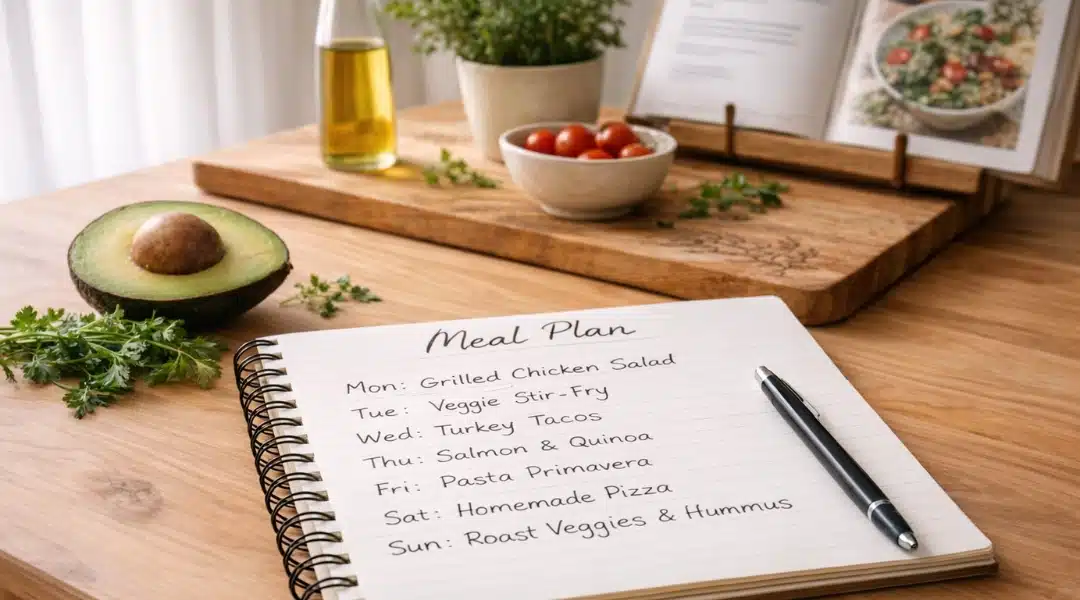 Meal Plan
Mon: Grilled Chicken Salad
Tue: Veggie Stir-Fry
Wed: Turkey Tacos
Thu: Salmon & Quinoa
Fri: Pasta Primavera
Sat: Homemade Pizza
Sun: Roast Veggies & Hummus